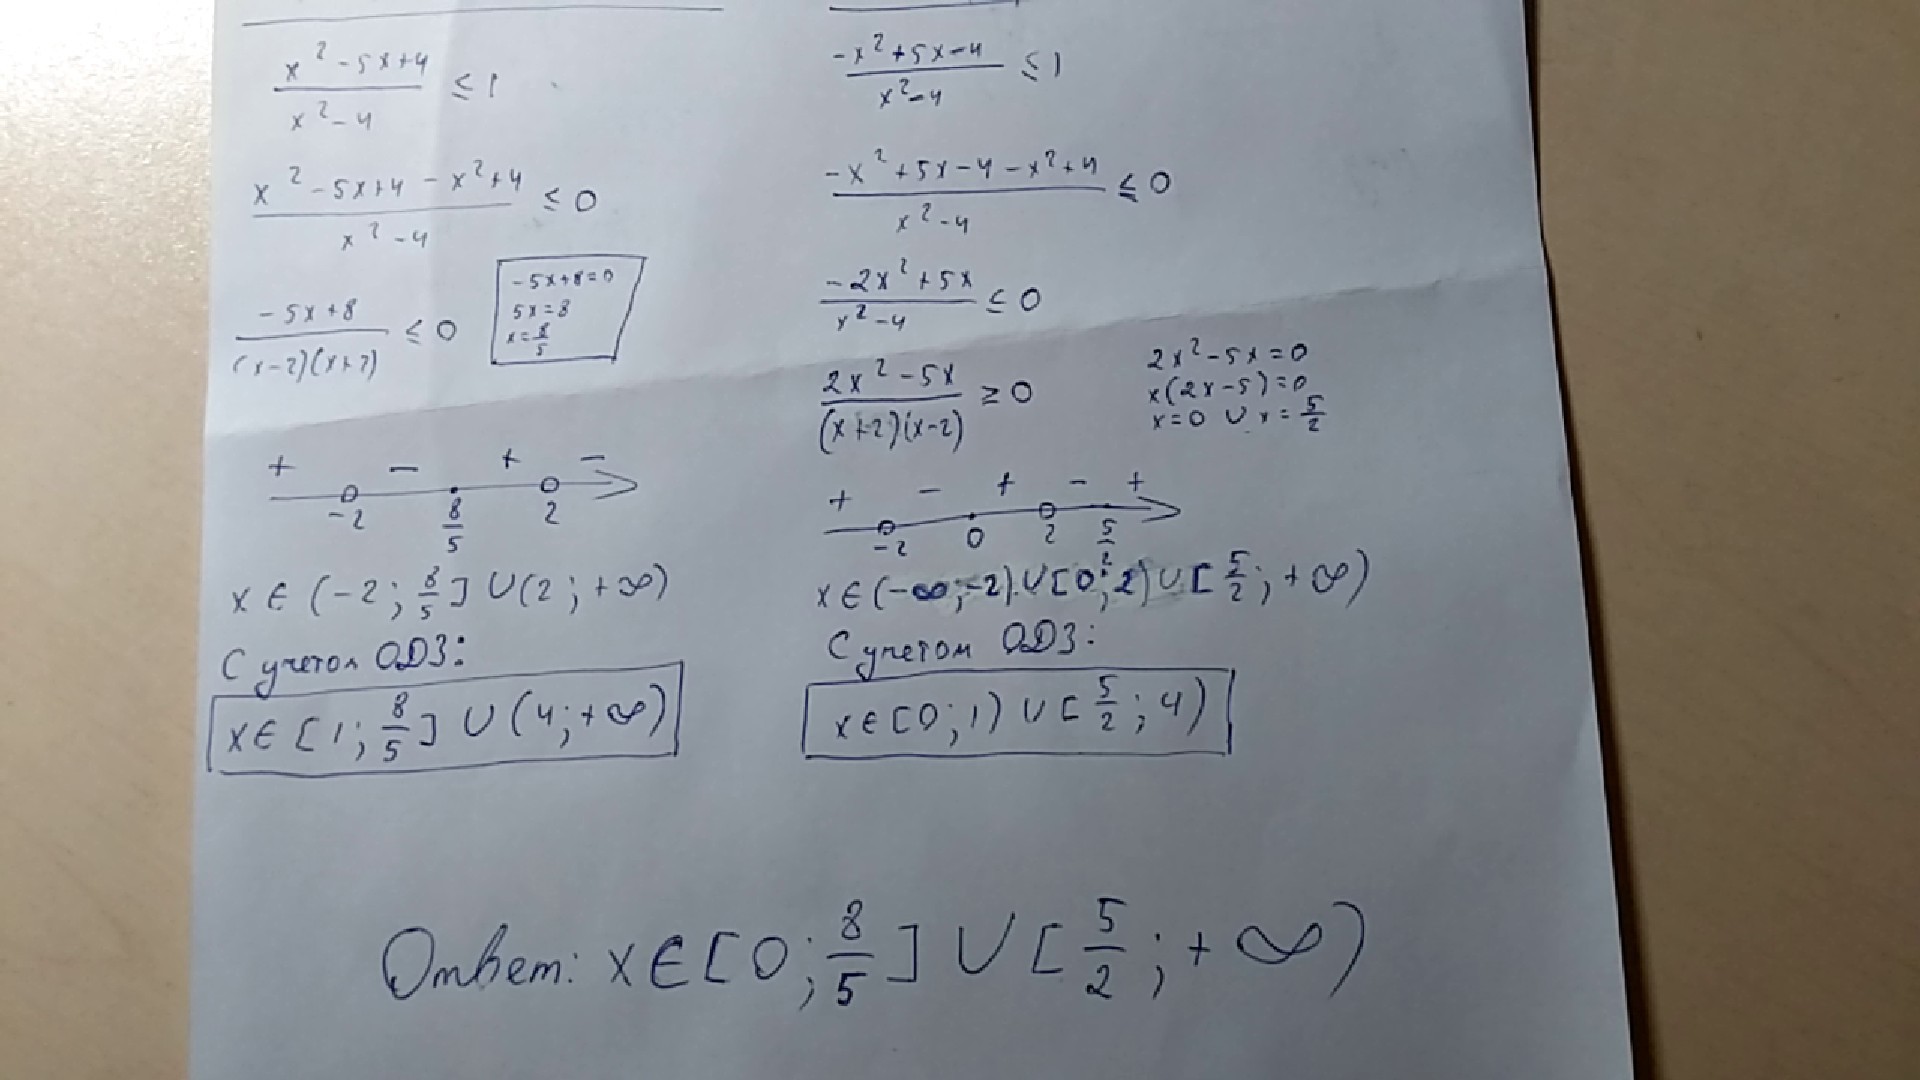 x² - 5x + 4 / x² - 4 ≤ 1
x² - 5x + 4 - x² + 4 / x² - 4 ≤ 0
-5x + 8 / (x - 2)(x + 2) ≤ 0
-5x + 8 = 0
5x = 8
x = 8/5
+ - + -
-2 8/5 2
x ∈ (-2; 8/5] ∪ (2; +∞)
С учетом ОДЗ:
x ∈ [1; 8/5] ∪ (4; +∞)
-x² + 5x - 4 / x² - 4 ≤ 1
-x² + 5x - 4 - x² + 4 / x² - 4 ≤ 0
-2x² + 5x / x² - 4 ≤ 0
2x² - 5x / (x + 2)(x - 2) ≥ 0
2x² - 5x = 0
x(2x - 5) = 0
x = 0 ∪ x = 5/2
+ - + - +
-2 0 2 5/2
x ∈ (-∞; -2) ∪ [0; 2) ∪ [5/2; +∞)
С учетом ОДЗ:
x ∈ [0; 1) ∪ [5/2; 4)
Ответ: x ∈ [0; 8/5] ∪ [5/2; +∞)